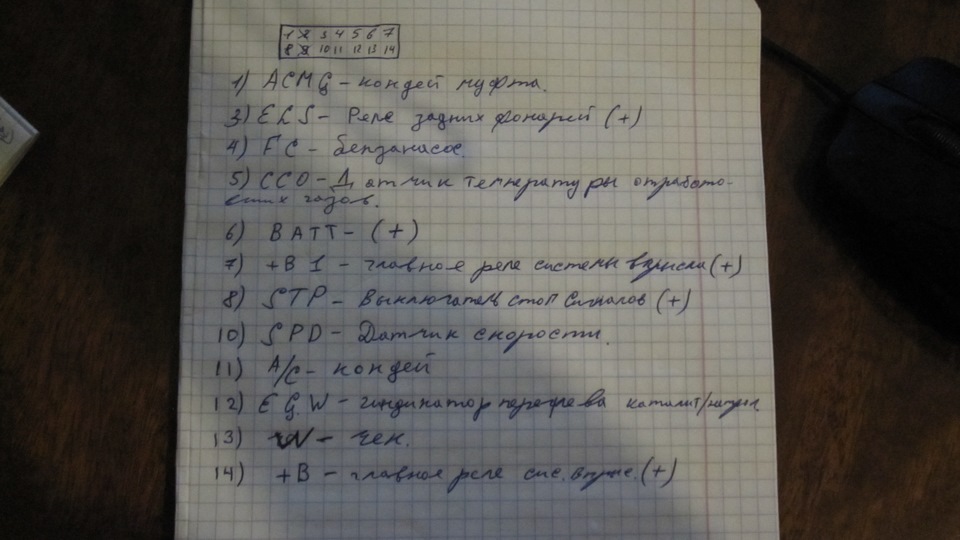 1 2 3 4 5 6 7
8 9 10 11 12 13 14
1) ACMG – кондей муфта.
3) ELS – Реле задних фонарей (+)
4) FC – бензанасос.
5) CCO – Датчик температуры отработо-
ских газов.
6) BATT – (+)
7) +B 1 – главное реле системы впрыска (+)
8) STP – Выключатель стоп сигналов (+)
10) SPD – Датчик скорости.
11) A/C – кондей
12) EGW – индикатор перегрева катализ/
13) W – чек.
14) +B – главное реле сис. впрыс. (+)